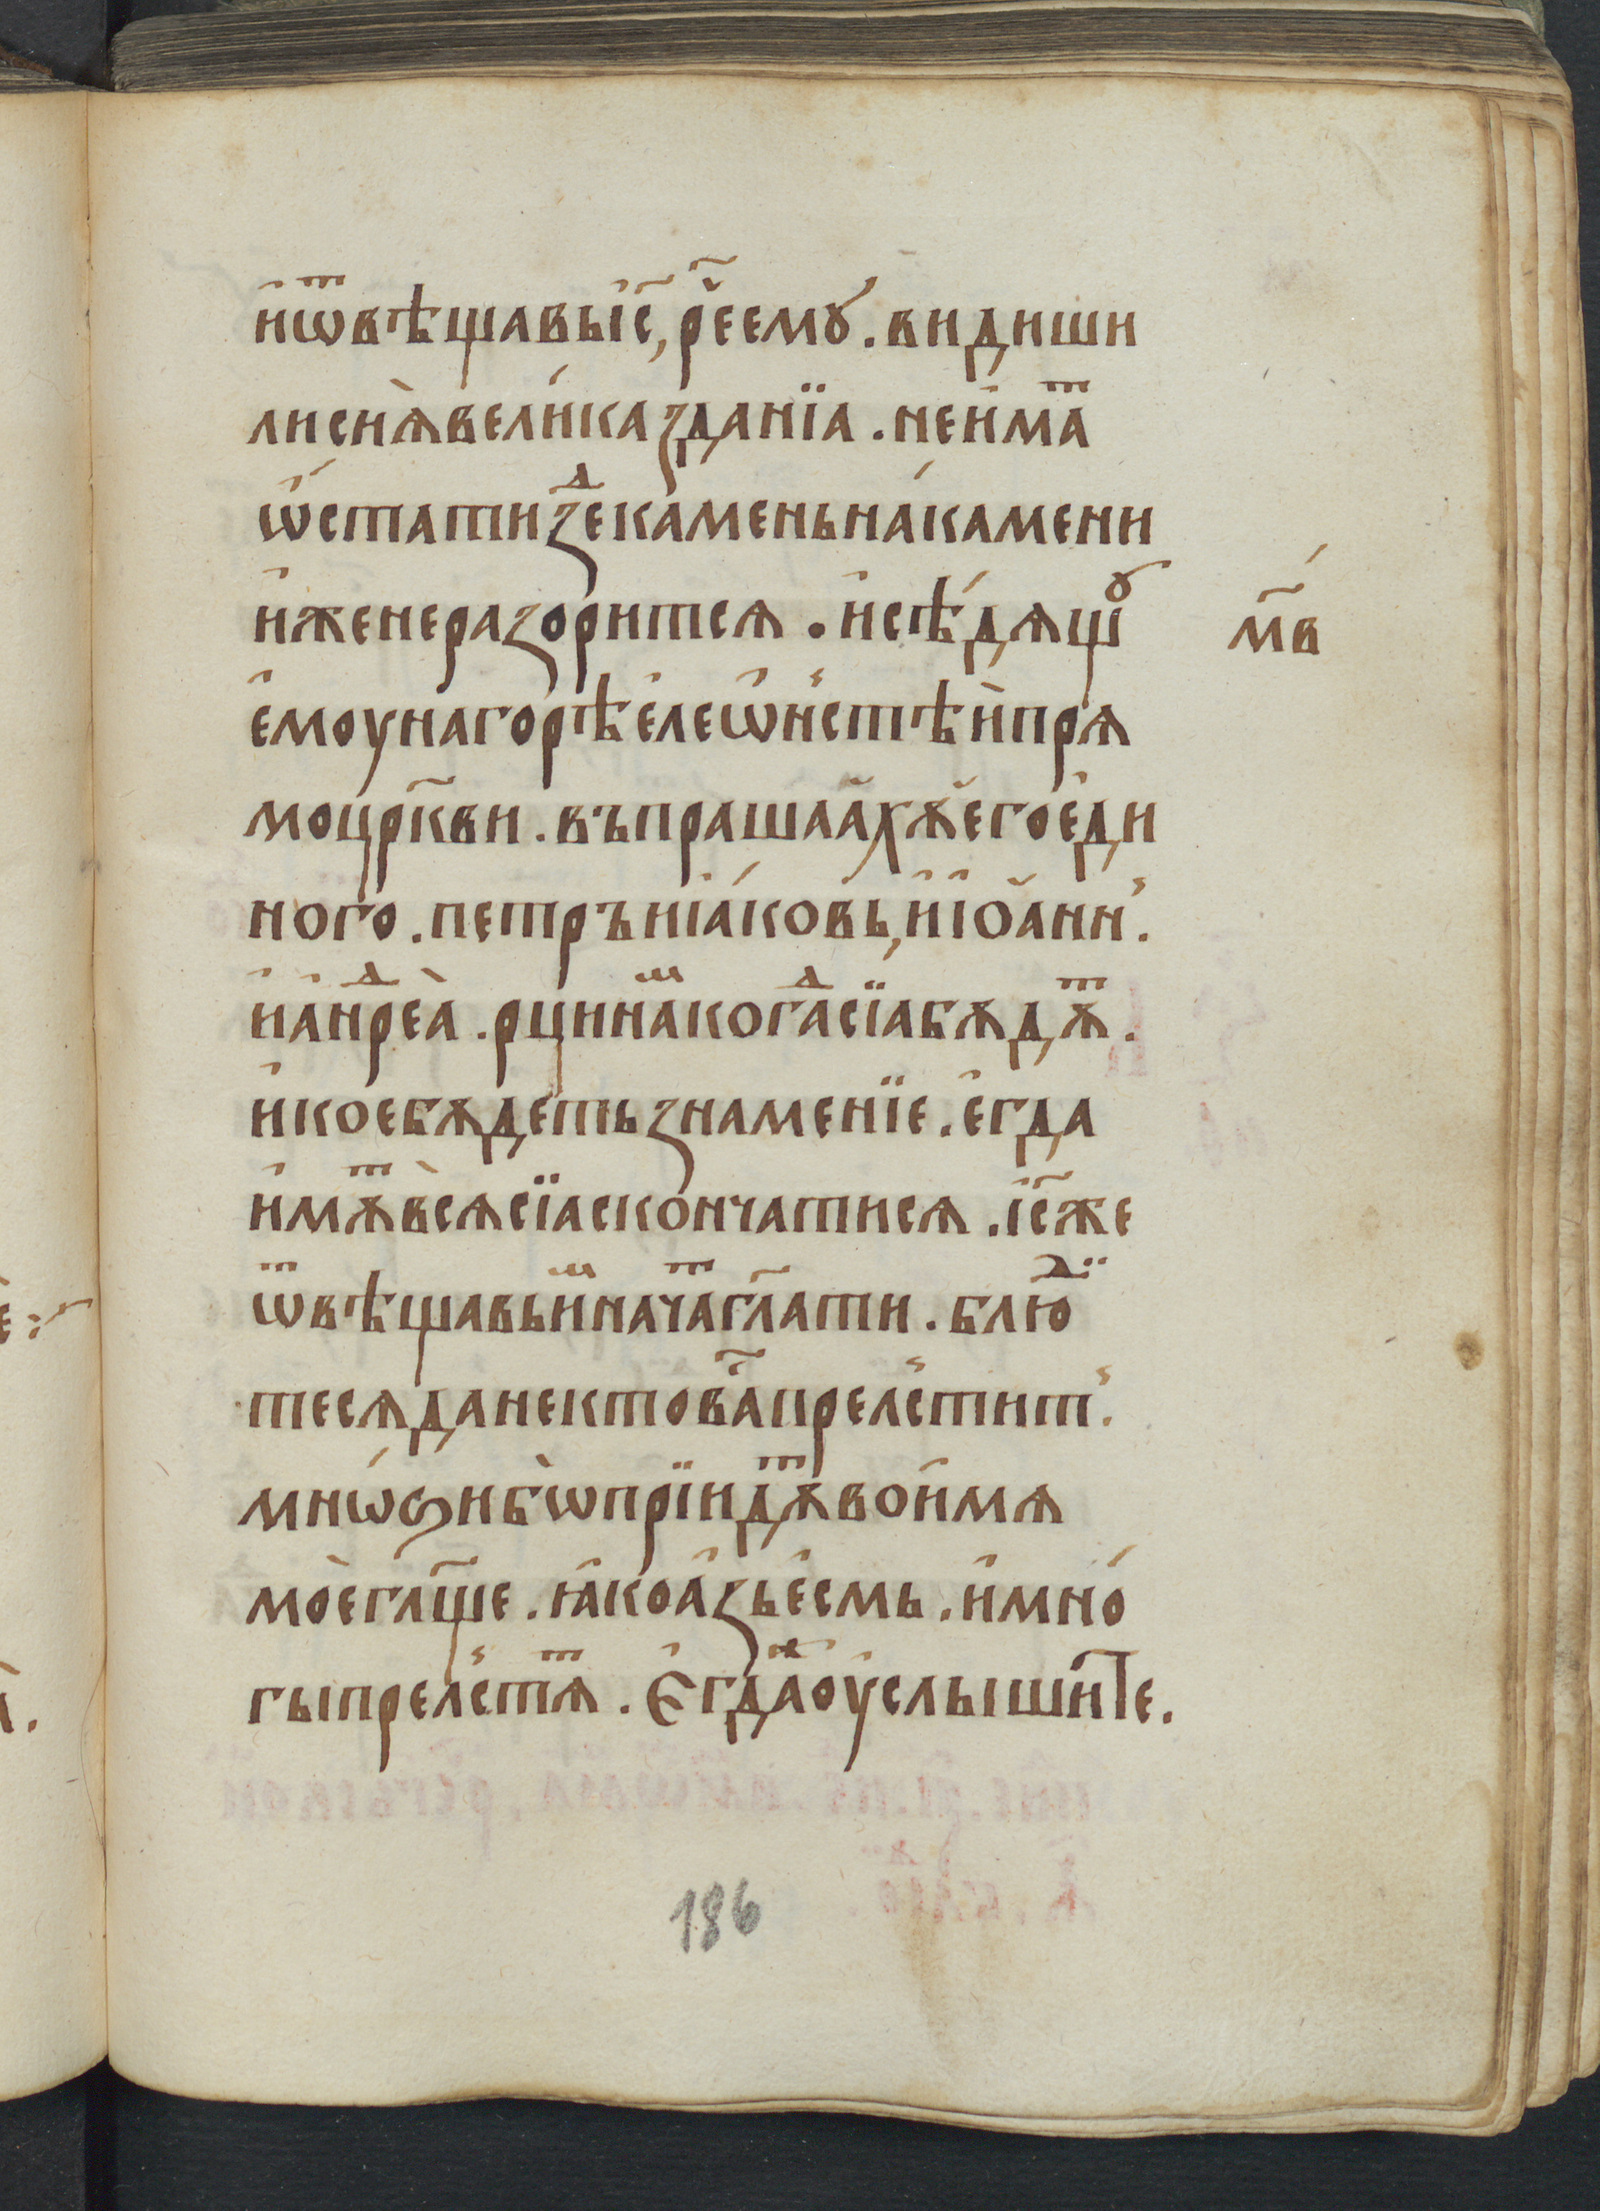 и҆ ѿвѣщавь і҆с҃, рⷱ҇е емꙋ́ . видиши
ли сиѧ̀ вели́ка зданїа . не и҆маⷮ
ѡ҆ста́ти зⷣе ка́мень на́ камени
и҆же не разоритсѧ . и҆ сѣ́дѧщꙋ
е҆моу на горѣ е҆леѡ҆н᾿стѣ и҆ прѧ̀
мо цр҃кви . въпрашаӑхѫ е҆го е҆ди
ного . петръ и і҆а́ковь, и҆ і҆ѡӑнн᾿ .
и҆ а҆нⷣреа̀ . рци наⷨ когⷣа сїа бѫдѫⷮ .
и҆ кое бѫдеть знаменїе . е҆гда
и҆мѫⷮ всѧ̀ сїа скончатисѧ . і҆с҃ же
ѿвѣщавь иⷨ начаⷮ гл҃ати . блюⷣ
тесѧ да некто ва́с прел᾿стит᾿ .
мнѡ́ѕи бѡ̀ прїидѫⷮ во и҆мѧ
моѐ гл҃ще . ꙗ҆ко а҆зь е҆смь . и҆ мно́
гы прел᾿стѧⷮ . Е҆гдаⷤ оу҆слышите .
м҃в
186